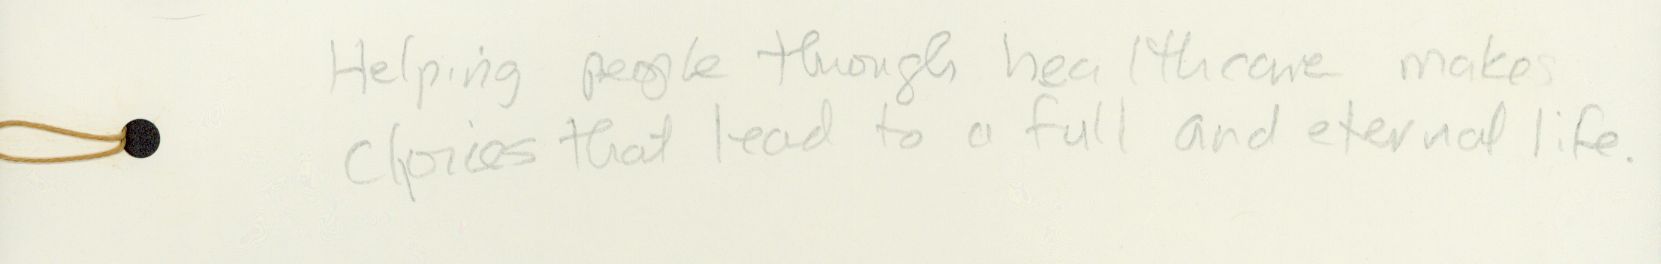 Helping people through healthcare makes
choices that lead to a full and eternal life.